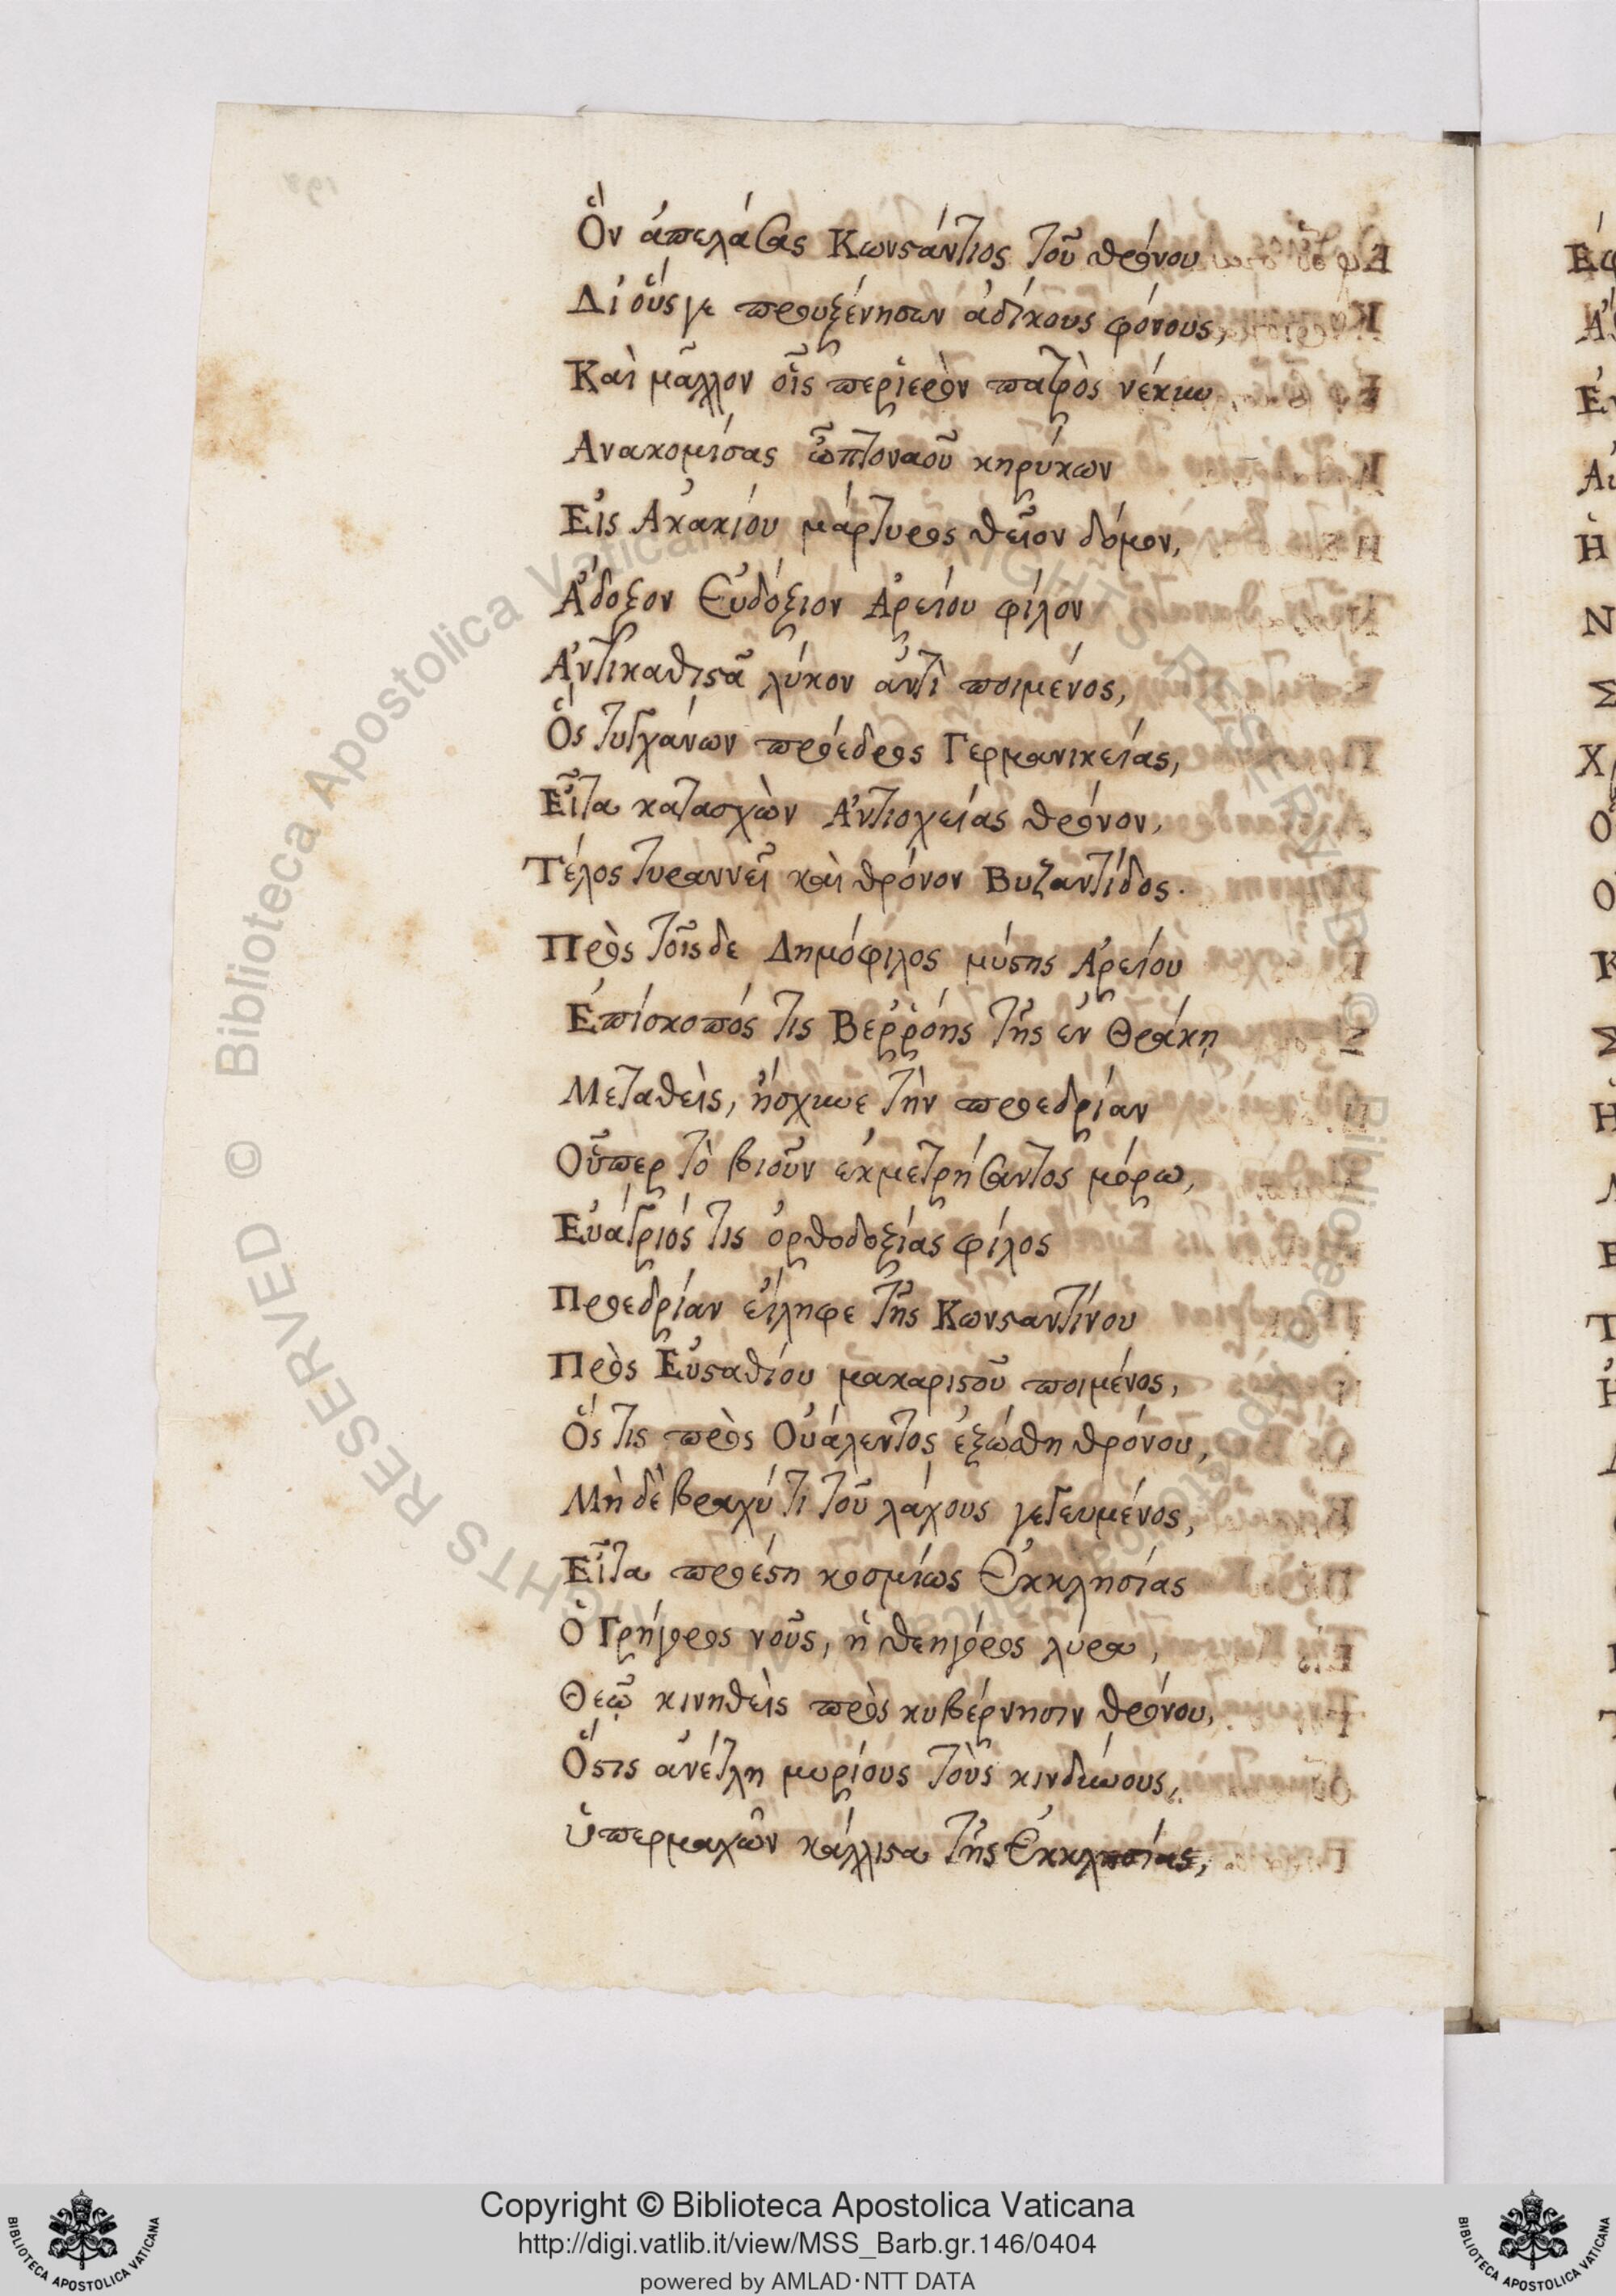 Ὃν ἀπελάσας Κωνστάντιος τοῦ θρόνου
Δι' οὕς γε προυξένησεν ἀδίκους φόνους,
Καὶ μᾶλλον οἷς περ ἱερὸν πατρὸς νέκυν
Ανακομίσας ναοῦ κηρύκων
Εἰς Ἀκακίου μάρτυρος θεῖον δόμον,
Ἄδοξον Εὐδόξιον Ἀρείου φίλον
Ἀντικαθιστᾶ λύκον ἀντὶ ποιμένος,
Ὃς τυγχάνων πρόεδρος Γερμανικείας,
Εἶτα κατασχὼν Ἀντιοχείας θρόνον,
Τέλος τυραννεῖ καὶ θρόνον Βυζαντίδος.
Πρὸς τοῖς δε Δημόφιλος μύστης Ἀρείου
Ἐπίσκοπός τις Βεῤῥόης τῆς ἐν Θράκῃ
Μεταθεὶς, ᾔσχυνε τὴν προεδρίαν
Οὗπερ τὸ βιοῦν ἐκμετρήσαντος μόρῳ,
Εὐάγριός τις ὀρθοδοξίας φίλος
Προεδρίαν εἴληφε τῆς Κωνσταντίνου
Πρὸς Εὐσταθίου μακαριστοῦ ποιμένος,
Ὅς τις πρὸς Οὐάλεντος ἐξώσθη θρόνου,
Μὴ δὲ βραχύ τι τοῦ λάχους γεγευμένος,
Εἶτα προέστη κοσμίως Ἐκκλησίας
Ὁ Γρήγορος νοῦς, ἡ θεηγόρος λύρα,
Θεῷ κινηθεὶς πρὸς κυβέρνησιν θρόνου,
Ὅστις ἀνέτλη μυρίους τοὺς κινδύνους,
ὑπερμαχῶν κάλλιστα τῆς Ἐκκλησίας,
Copyright © Biblioteca Apostolica Vaticana
http://digi.vatlib.it/view/MSS_Barb.gr.146/0404
powered by AMLAD·NTT DATA